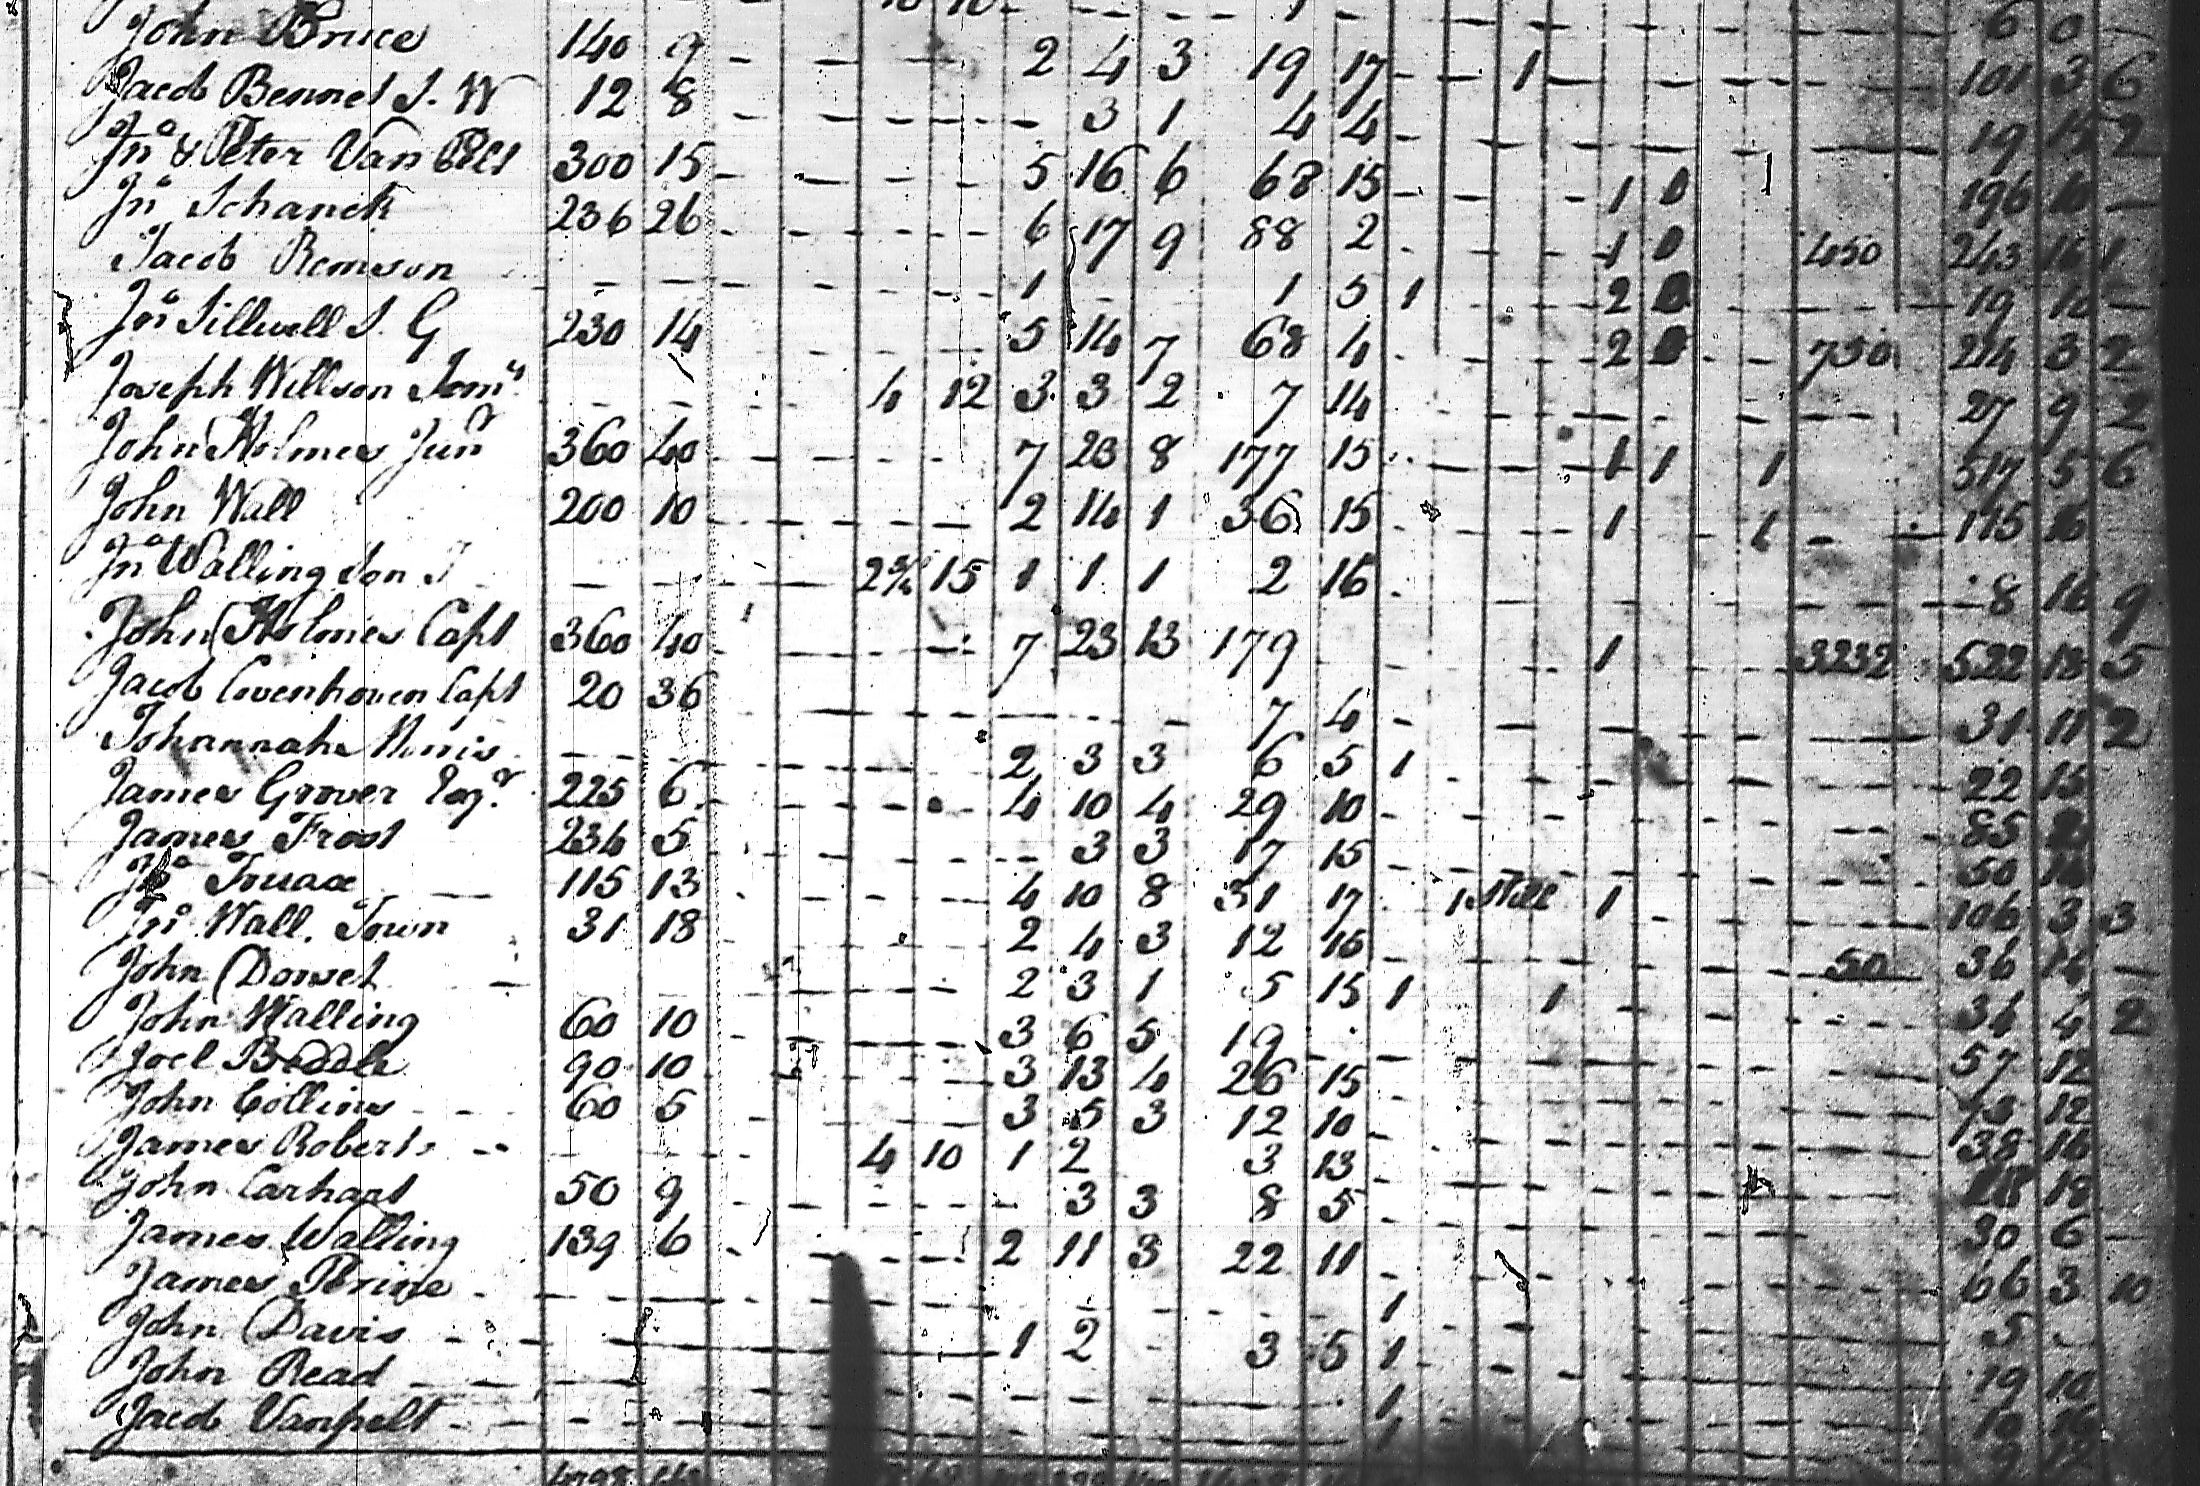 John Bruce 140 9 2 4 3 19 17 1 101 3 6
Jacob Bennet S. W 12 8 3 1 4 4 19 15 2
Jno & Peter Van Pelt 300 15 5 16 6 68 15 1 1 196 10
Jno Schanck 236 26 6 17 9 88 2 1 1 450 243 16 1
Jacob Remson 1 1 5 1 2 19 10
Jno Stillwell S. G 230 14 5 14 7 68 4 2 750 214 3 2
Joseph Willson 4 12 3 3 2 7 14 27 9 2
John Holmes Junr 360 40 7 23 8 177 15 1 1 1 517 5 6
John Wall 200 10 2 14 1 36 15 1 1 115 16
Jno Walling Son J 2¾ 15 1 1 1 2 16 8 16 9
John Holmes Capt 360 40 7 23 13 179 1 3232 522 18 5
Jacob Covenhoven Capt 20 36 7 4 31 11 2
Johannah 2 3 3 6 5 1 22 15
James Grover Esqr 225 6 4 10 4 29 10 85
James Frost 236 5 3 3 17 15 50
Jno Truax 115 13 4 10 8 31 17 1 Still 1 106 3 3
Jno Wall. Town 31 18 2 4 3 12 16 50 36 14
John Dorset 2 3 1 5 15 1 1 34 4 2
John Walling 60 10 3 6 5 19 57 12
Joel Beddle 90 10 3 13 4 26 15 12
John Collins 60 5 3 5 3 12 10 38 16
James Roberts 4 10 1 2 3 13 18
John Carhart 50 9 3 3 8 5 30 6
James Walling 139 6 2 11 3 22 11 66 3 10
James Prine 1 5
John Davis 1 2 3 5 1 19 10
John Read 1 10 16
Jacob Vanpelt 1 12